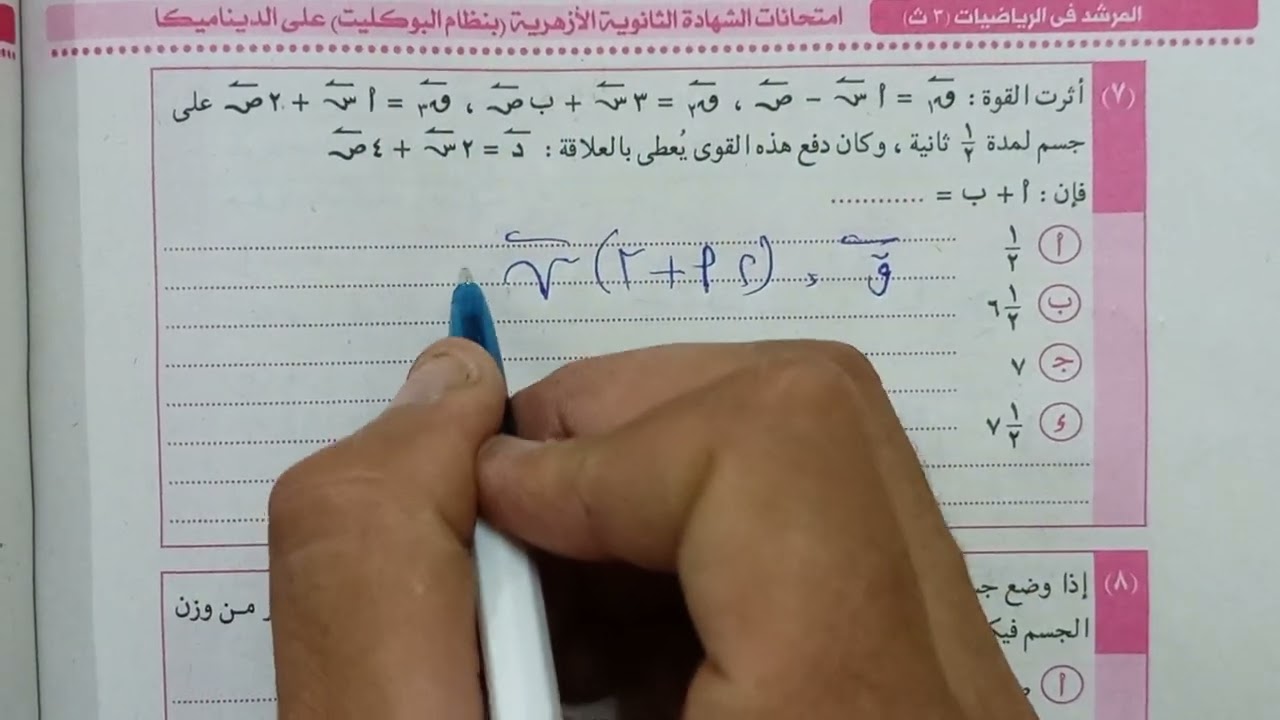 المرشد فى الرياضيات (٣ ث)
امتحانات الشهادة الثانوية الأزهرية (بنظام البوكليت) على الديناميكا
(٧) أثرت القوة : ق١ = أ س − ص ، ق٢ = ٣ س + ب ص ، ق٣ = أ س + ٢ ص على
جسم لمدة ١/٢ ثانية ، وكان دفع هذه القوى يُعطى بالعلاقة : د = ٢ س + ٤ ص
فإن : أ + ب = ............
أ ١/٢
ب ٦ ١/٢
ج ٧
ء ٧ ١/٢
ق = (٢ أ + ٣) س
(٨) إذا وضع
من وزن
الجسم
أ